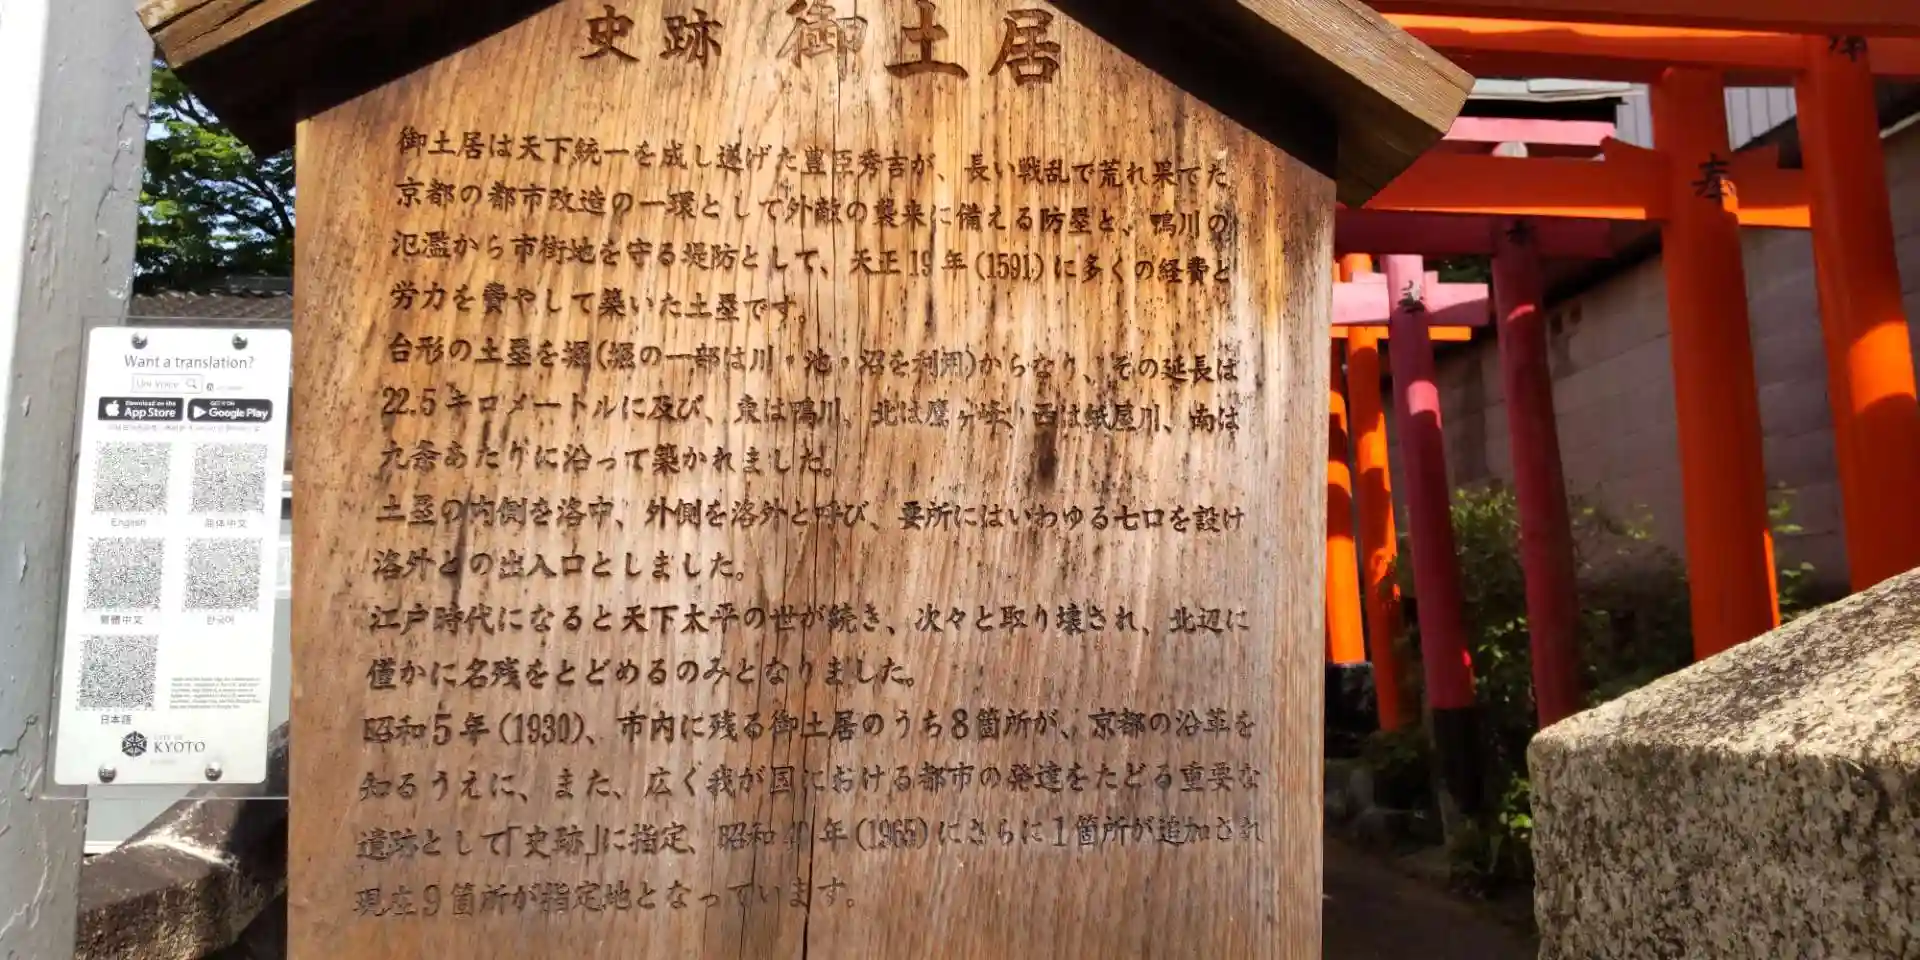 史跡 御土居
御土居は天下統一を成し遂げた豊臣秀吉が、長い戦乱で荒れ果てた
京都の都市改造の一環として外敵の襲来に備える防塁と、鴨川の
氾濫から市街地を守る堤防として、天正19年(1591)に多くの経費と
労力を費やして築いた土塁です。
台形の土塁を堀(堀の一部は川・池・沼を利用)からなり、その延長は
22.5キロメートルに及び、東は鴨川、北は鷹ヶ峰、西は紙屋川、南は
九条あたりに沿って築かれました。
土塁の内側を洛中、外側を洛外と呼び、要所にはいわゆる七口を設け
洛外との出入口としました。
江戸時代になると天下太平の世が続き、次々と取り壊され、北辺に
僅かに名残をとどめるのみとなりました。
昭和5年(1930)、市内に残る御土居のうち8箇所が、京都の沿革を
知るうえに、また、広く我が国における都市の発達をたどる重要な
遺跡として「史跡」に指定、昭和40年(1965)にさらに1箇所が追加され
現在9箇所が指定地となっています。
Want a translation?
Uni Voice
Download on the App Store
GET IT ON Google Play
English
简体中文
繁體中文
한국어
日本語
CITY OF KYOTO
奉